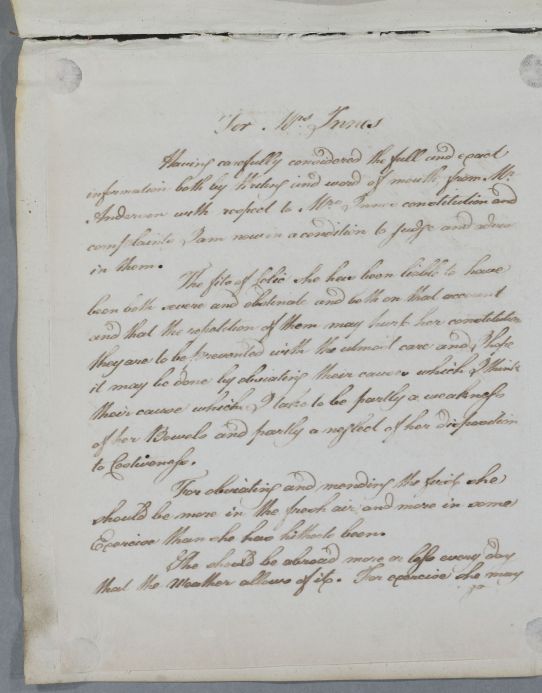 For Mrs Innes
Having carefully considered the full and exact
information both by Writing and word of mouth from Mr.
Anderson with respect to Mrs. Innes constitution and
complaints I am now in a condition to Judge and advise
in them.
The fits of Colic she has been liable to have
been both severe and obstinate and both on that account
and that the repetition of them may hurt her constitution
they are to be prevented with the utmost care and I hope
it may be done by obviating their causes which I think
their cause which I take to be partly a weakness
of her Bowels and partly a neglect of her disposition
to Costiveness.
For obviating and mending the first she
should be more in the fresh air and more in some
Exercise than she has hitherto been.
She should be abroad more or less every day
that the Weather allows of it. For exercise she may